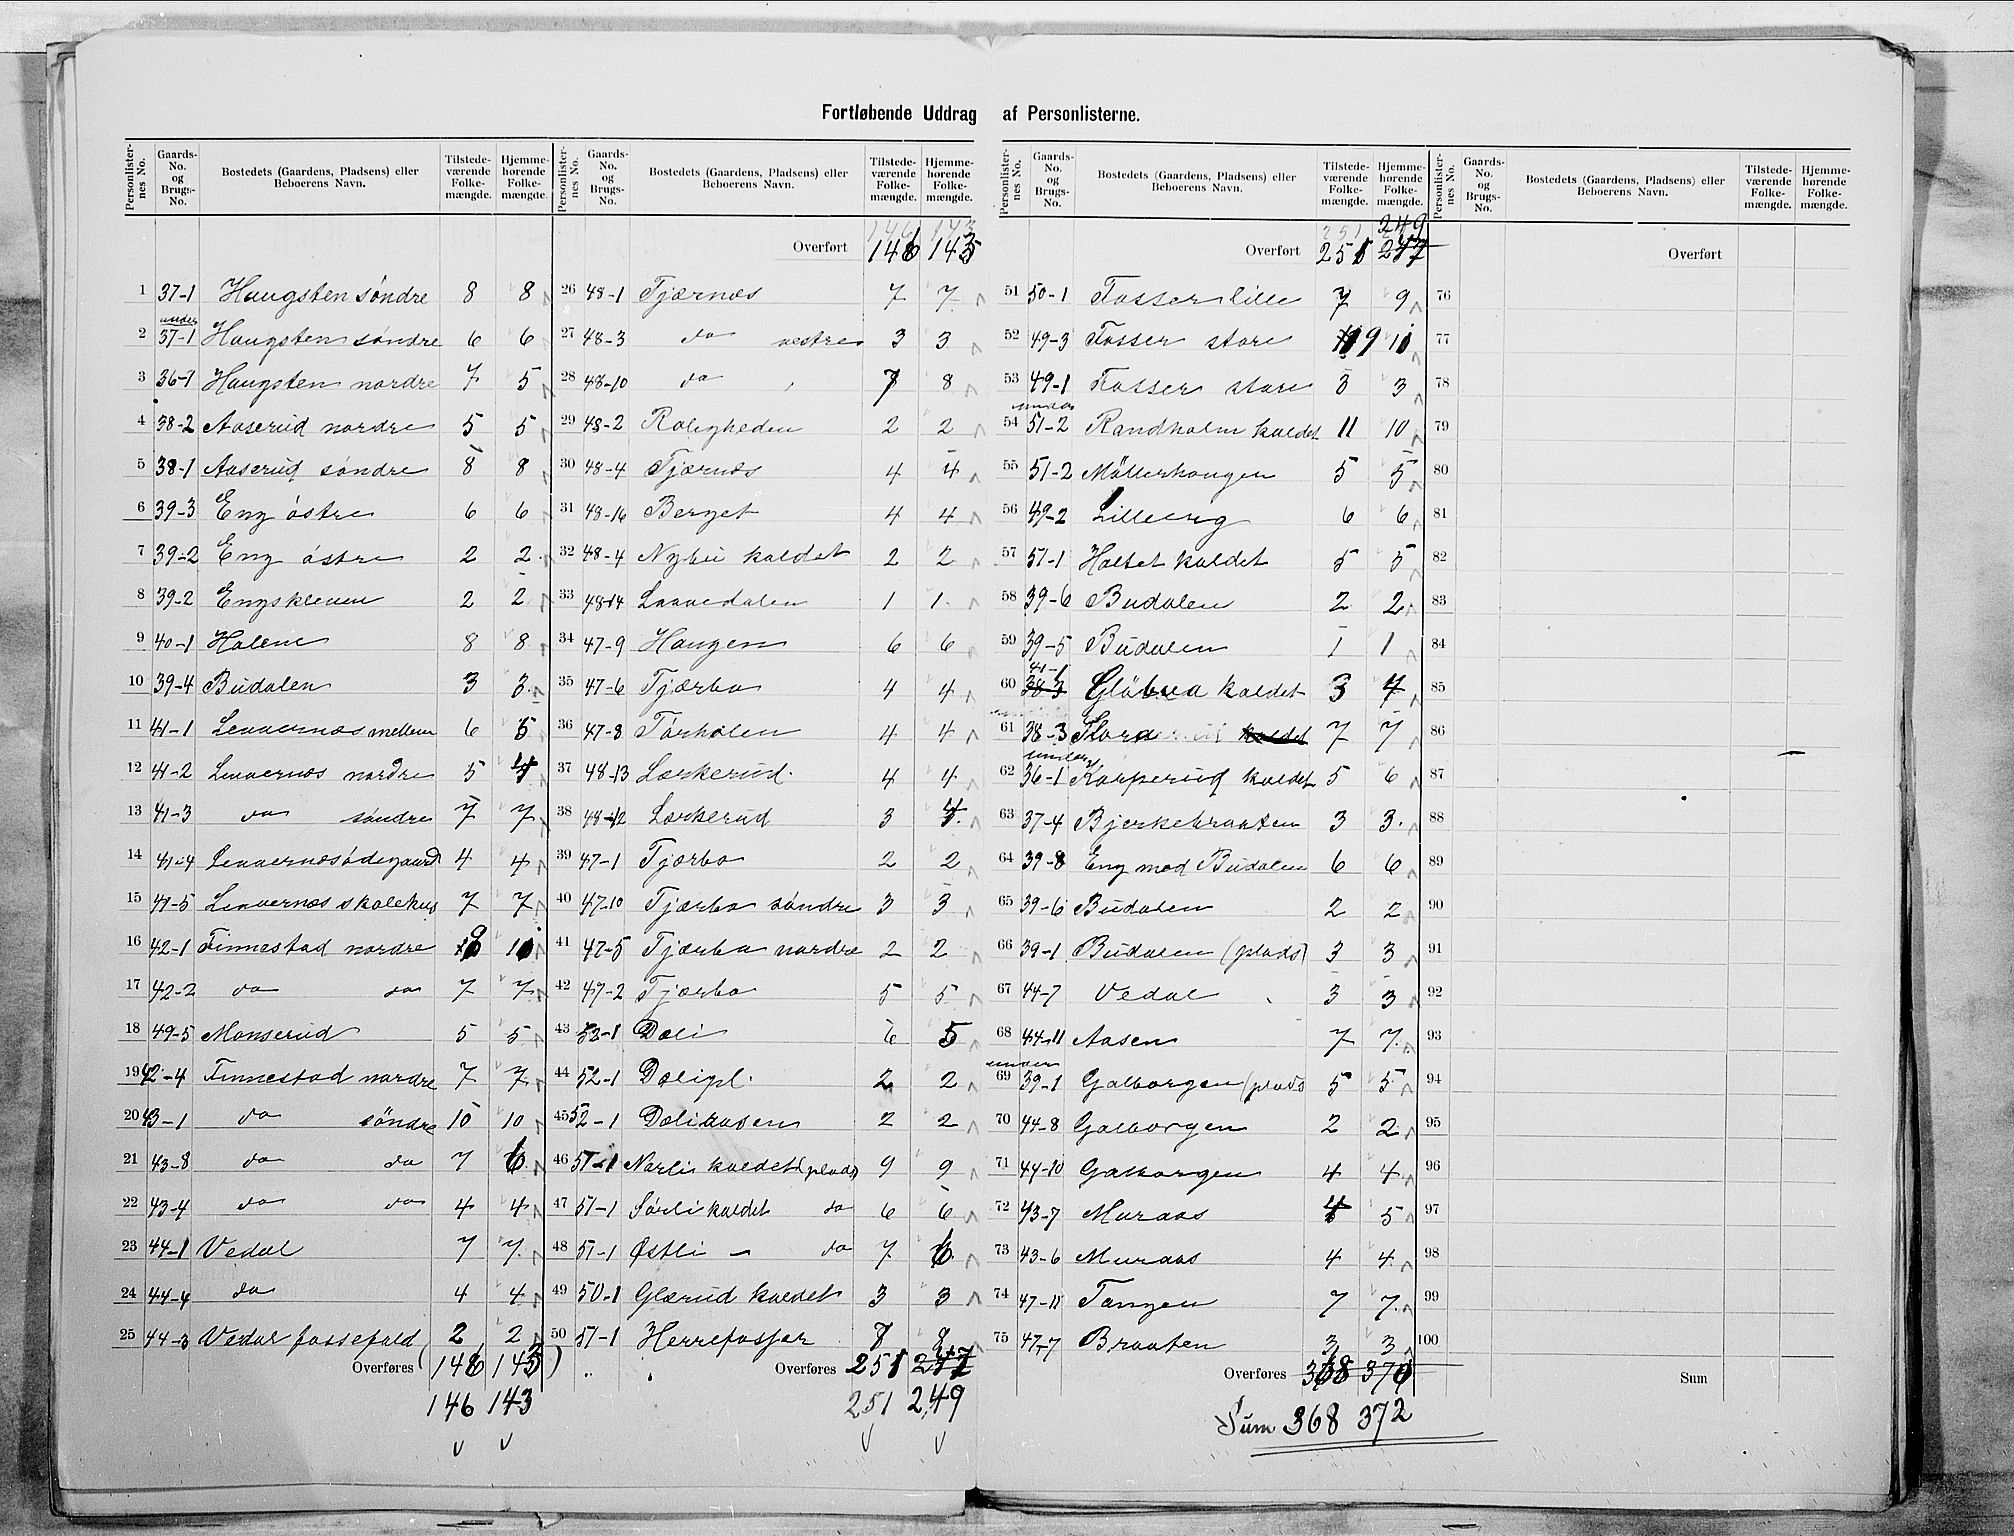 Fortløbende Uddrag af Personlisterne.
Personlisternes No. | Gaards-No. og Brugs-No. | Bostedets (Gaardens, Pladsens) eller Beboerens Navn. | Tilstedeværende Folkemængde. | Hjemmehørende Folkemængde.
1 37-1 Haugsten søndre 8 8
2 under 37-1 Haugsten søndre 6 6
3 36-1 Haugsten nordre 7 5
4 38-2 Aaserud nordre 5 5
5 38-1 Aaserud søndre 8 8
6 39-3 Eng østre 6 6
7 39-2 Eng østre 2 2
8 39-2 Engskleven 2 2
9 40-1 Holene 8 8
10 39-4 Budalen 3 3
11 41-1 Levernæs mellem 6 5
12 41-2 Levernæs nordre 5 4
13 41-3 do søndre 7 7
14 41-4 Levernæsødegaard 4 4
15 41-5 Levernæs skolehus 7 7
16 42-1 Finnestad nordre 9 10
17 42-2 do do 7 7
18 49-5 Monserud 5 5
19 42-4 Finnestad nordre 7 7
20 43-1 do søndre 10 10
21 43-8 do do 7 6
22 43-4 do do 4 4
23 44-1 Vedal 7 7
24 44-4 do 4 4
25 44-3 Vedal fossefald 2 2
Overføres (146 143)
146 143
Personlisternes No. | Gaards-No. og Brugs-No. | Bostedets (Gaardens, Pladsens) eller Beboerens Navn. | Tilstedeværende Folkemængde. | Hjemmehørende Folkemængde.
146 143
Overført 146 143
26 48-1 Tjærnæs 7 7
27 48-3 do vestre 3 3
28 48-10 do 7 8
29 48-2 Roligheden 2 2
30 48-4 Tjærnæs 4 4
31 48-16 Berget 4 4
32 48-4 Nybu kaldet 2 2
33 48-14 Laavedalen 1 1
34 47-9 Haugen 6 6
35 47-6 Tjærbo 4 4
36 47-8 Torholen 4 4
37 48-13 Lærkerud 4 4
38 48-12 Lærkerud 3 4
39 47-1 Tjærbo 2 2
40 47-10 Tjærbo søndre 3 3
41 47-5 Tjærbo nordre 2 2
42 47-2 Tjærbo 5 5
43 52-1 Dæli 6 5
44 52-1 Dælipl. 2 2
45 52-1 Dæliaasen 2 2
46 51-1 Nærli kaldet (plads) 9 9
47 51-1 Sørli kaldet do 6 6
48 51-1 Østli - do 7 6
49 50-1 Glærud kaldet 3 3
50 51-1 Herrefosser 7 8
Overføres 251 247
251 249
Personlisternes No. | Gaards-No. og Brugs-No. | Bostedets (Gaardens, Pladsens) eller Beboerens Navn. | Tilstedeværende Folkemængde. | Hjemmehørende Folkemængde.
251 249
Overført 251 247
51 50-1 Fosser lille 7 9
52 49-3 Fosser store 9 10
53 49-1 Fosser store 3 3
54 under 51-2 Randholm kaldet 11 10
55 51-2 Möllerhaugen 5 5
56 49-2 Lilleeng 6 6
57 51-1 Holtet kaldet 5 5
58 39-6 Budalen 2 2
59 39-5 Budalen 1 1
60 41-1 38-3 Glöbua kaldet 3 4
61 38-3 kaldet 7 7
62 under 36-1 Korperud kaldet 5 6
63 37-4 Bjerkebraaten 3 3
64 39-8 Eng med Budalen 6 6
65 39-6 Budalen 2 2
66 39-1 Budalen (plads) 3 3
67 44-7 Vedal 3 3
68 44-11 Aasen 7 7
69 under 39-1 Galborgen (plads 5 5
70 44-8 Galborgen 2 2
71 44-10 Galborgen 4 4
72 43-7 Muraas 4 5
73 43-6 Muraas 4 4
74 47-11 Tangen 7 7
75 47-7 Braaten 3 3
Overføres 368 370
Sum 368 372
Personlisternes No. | Gaards-No. og Brugs-No. | Bostedets (Gaardens, Pladsens) eller Beboerens Navn. | Tilstedeværende Folkemængde. | Hjemmehørende Folkemængde.
Overført
76
77
78
79
80
81
82
83
84
85
86
87
88
89
90
91
92
93
94
95
96
97
98
99
100
Sum